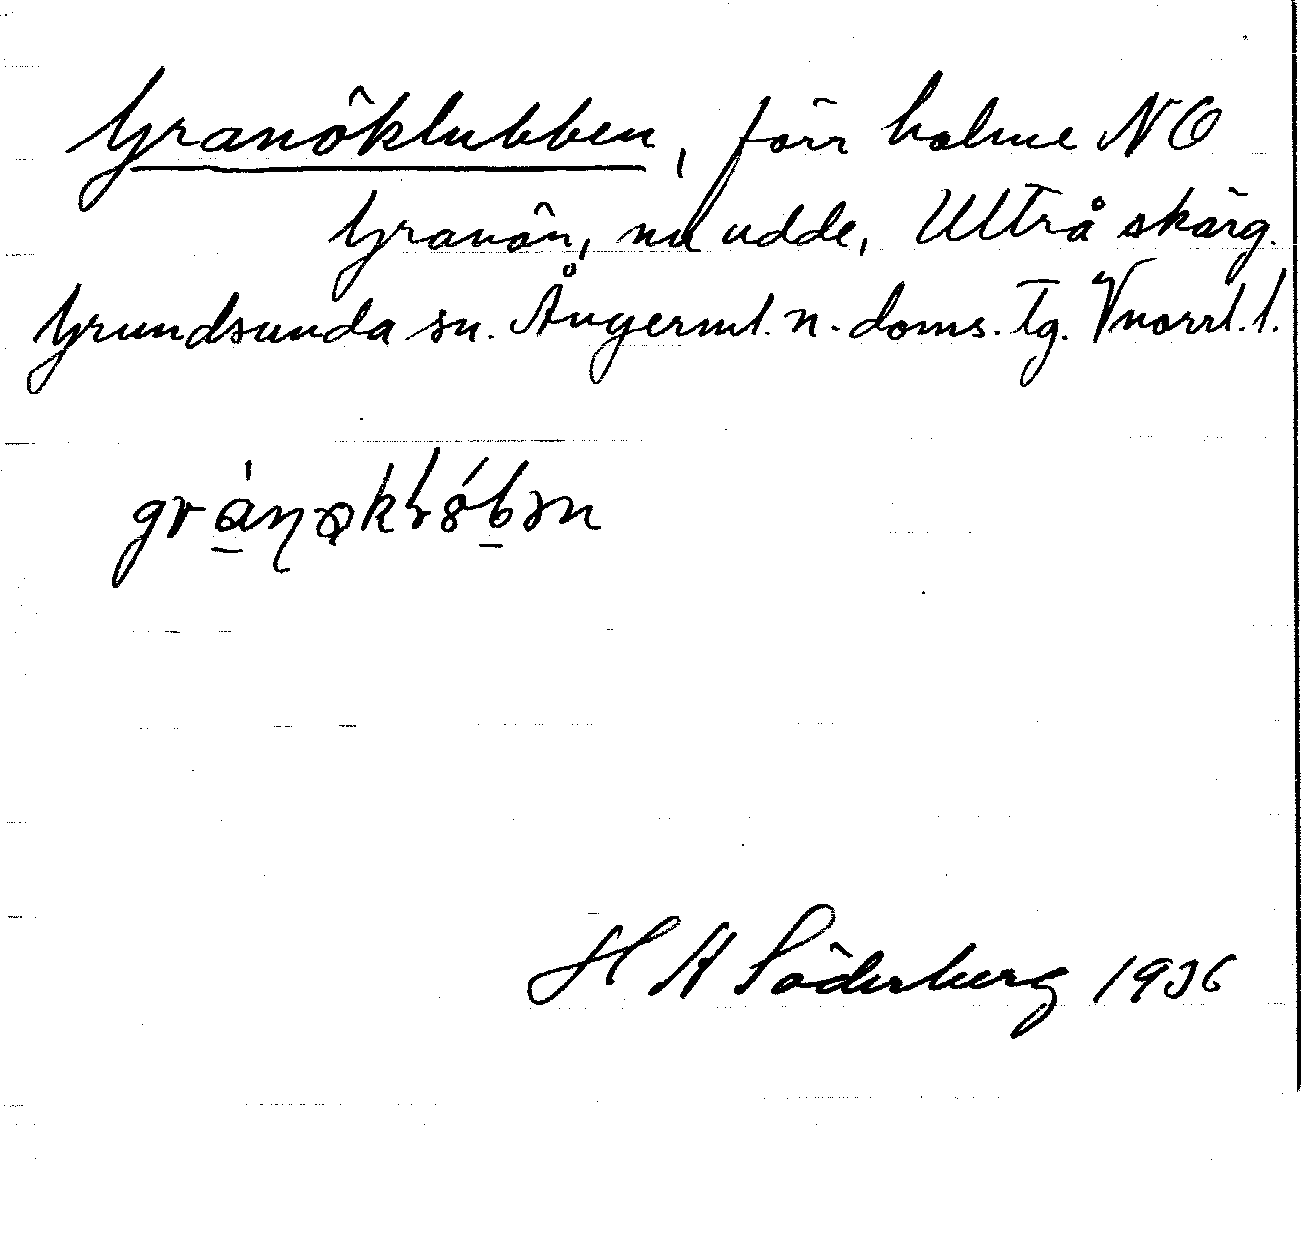 Granöklubben, förr holme NO
Granön, nu udde, Ultrå skärg.
Grundsunda sn. Ångerml. n. doms. tg. Vnorrl. l.
H A Söderberg 1936